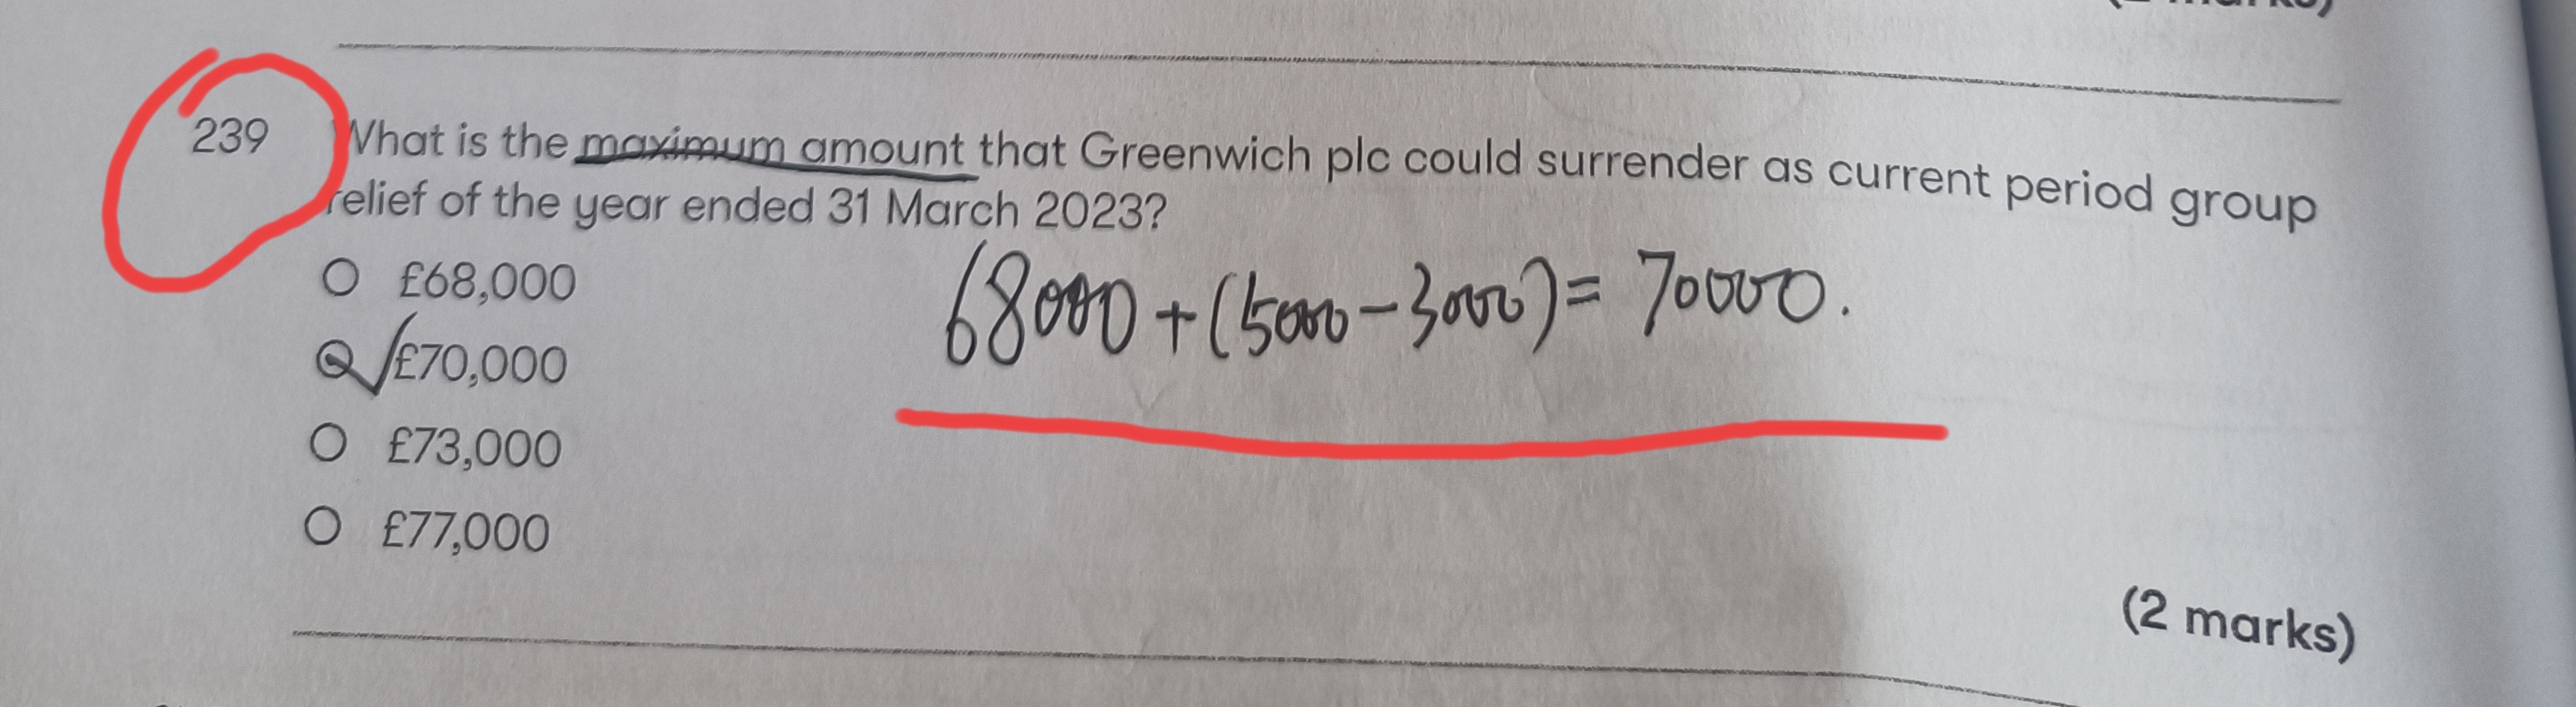 239 What is the maximum amount that Greenwich plc could surrender as current period group
relief of the year ended 31 March 2023?
£68,000
£70,000
£73,000
£77,000
68000 + (5000 - 3000) = 70000.
(2 marks)